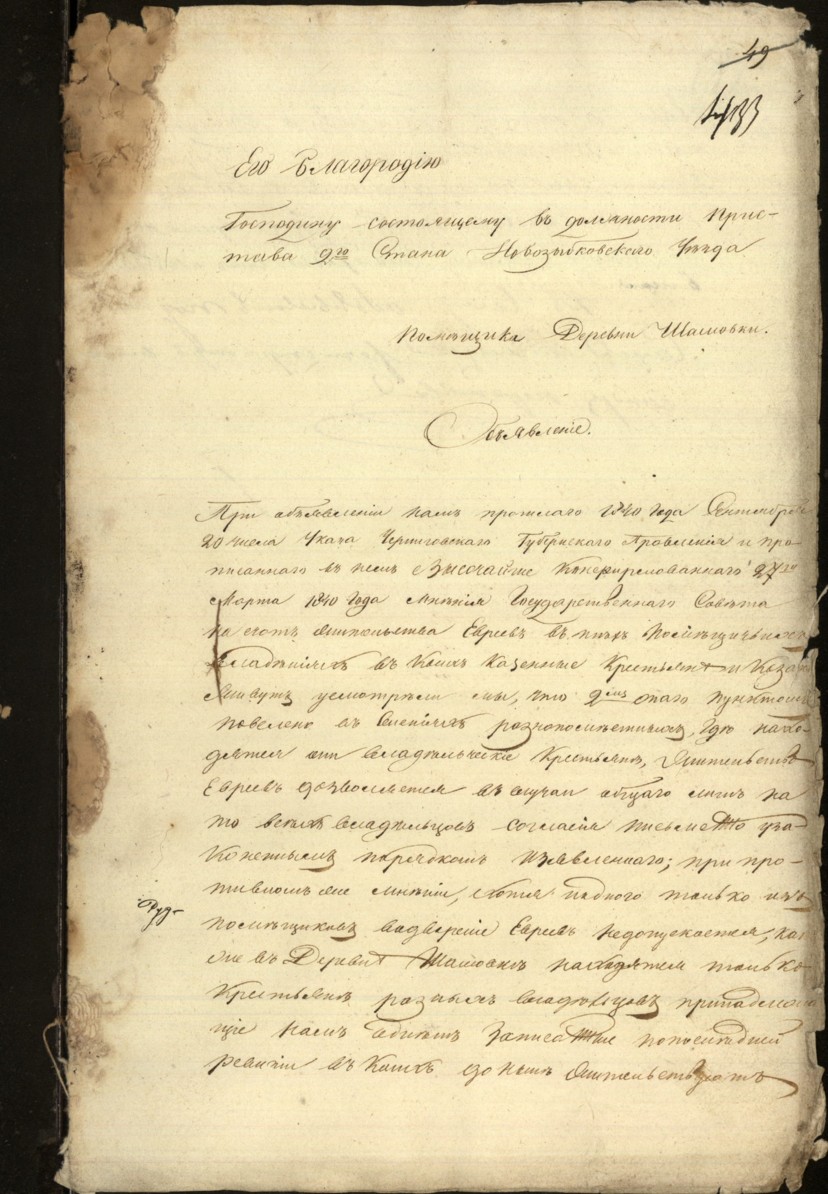 49
433
Его Благородію
Господину состоящему въ должности Прис-
тава 2го Стана Новозыбковского Уѣзда
Помѣщика Деревни Шамовки.
Объявленіе.
При объявленіи намъ прошлаго 1840 Года Сентября
20 числа Указа Черниговскаго Губернскаго Правленія и про-
писаннаго въ немъ Высочайше Конфирмованнаго 27го
Марта 1840 Года мнѣнія Государственнаго Совѣта
на счетъ жительства Евреевъ въ тѣхъ Помѣщичьихъ
владѣніяхъ въ коихъ казенные Крестьяне и Казаки
живутъ усмотрѣли мы, что 2мъ онаго пунктомъ
повелено въ имѣніяхъ разнопомѣстныхъ, гдѣ нахо-
дятся владѣльческіе Крестьяне, жительство
Евреевъ дозволяется въ случаи общаго на
то всѣхъ владѣльцовъ согласія письменно уза-
коненнымъ порядкомъ изъявленнаго; при про-
тивномъ же мнѣніи, хотя одного только изъ
помѣщиковъ водвореніе Евреевъ недопускается, как
же въ Деревнѣ Шамовкѣ находятся только
Крестьяне разныхъ владѣльцовъ принадлежа
щіе намъ записанные попоследней
ревизіи въ коихъ до нынѣ жительствуютъ